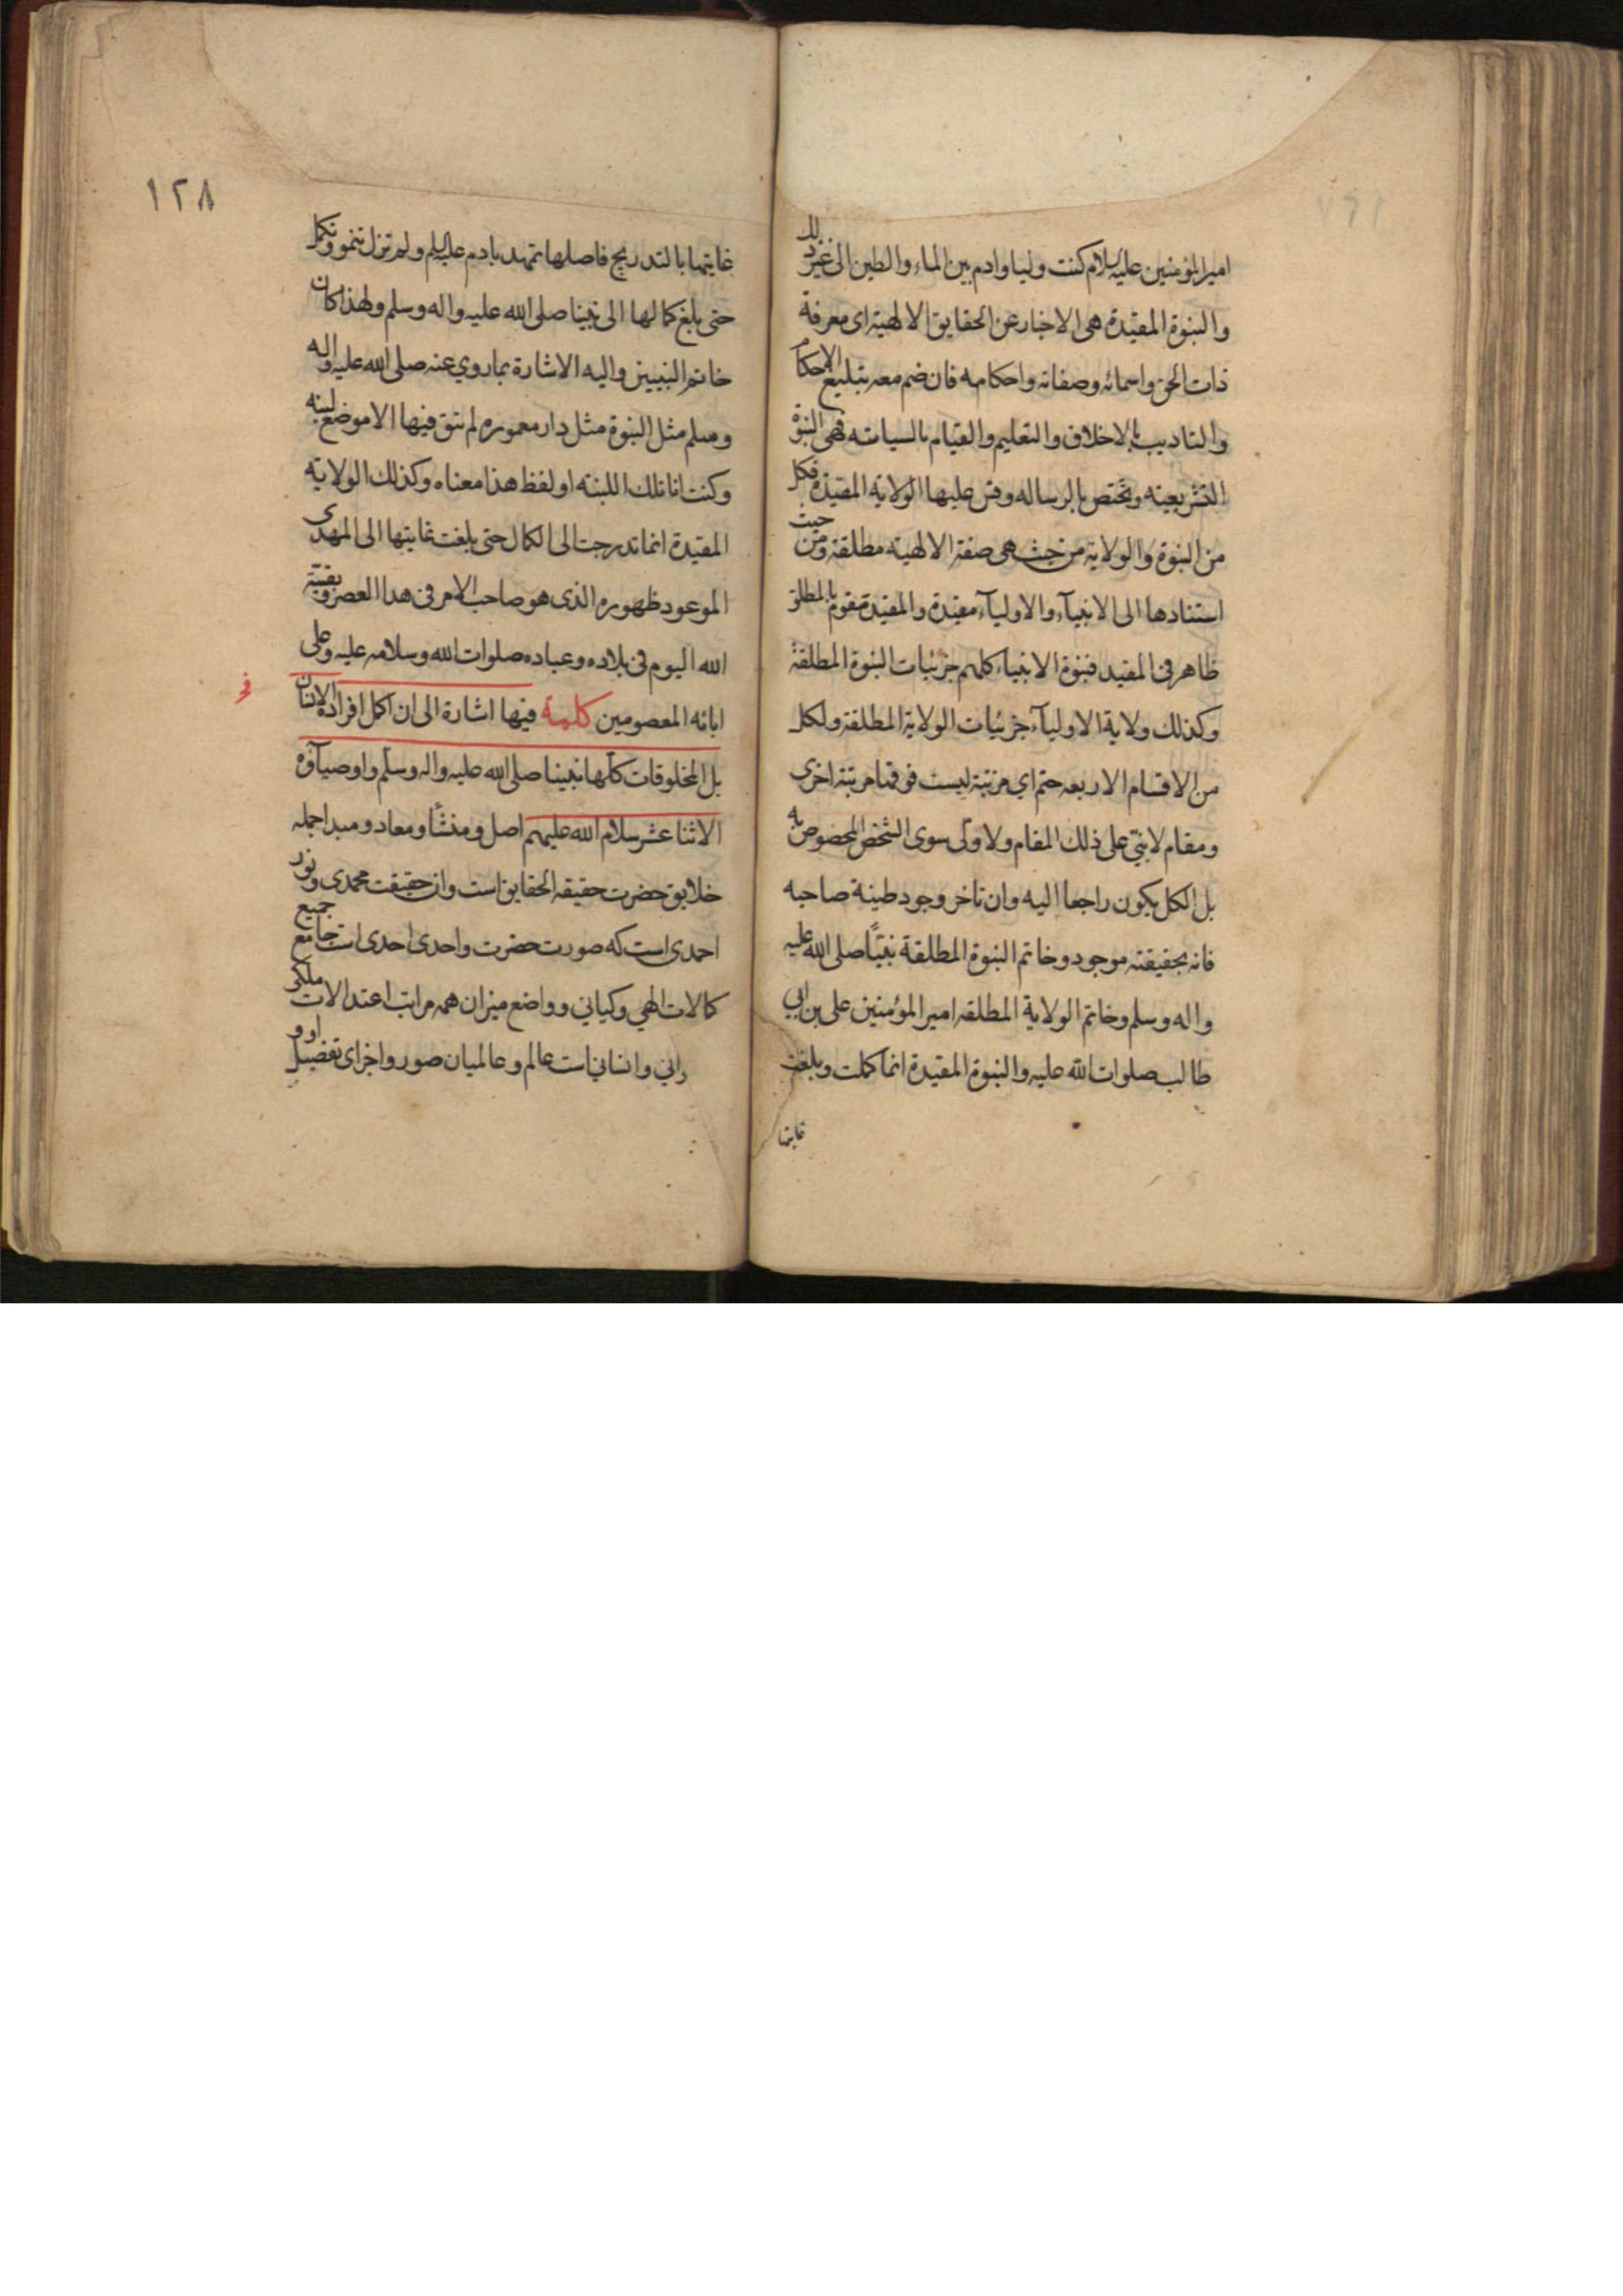 امیرالمؤمنین علیه السلام کنت ولیا وادم بین الماء والطین الی غیر ذلک
والنبوة المقیدة هی الاخبار عن الحقایق الالهیة ای معرفة
ذات الحق واسمائه وصفاته واحکامه فان ضم معه تبلیغ الاحکام
والتادیب بالاخلاق والتعلیم والقیام بالسیاسته فهی النبوة
التشریعیته وتختص بالرساله وقس علیها الولایة المقیدة فکل
من النبوة والولایة من حیث هی صفة الالهیته مطلقة ومن حیث
استنادها الی الانبیآء والاولیآء مقیدة والمقیدة مقوم بالمطلق
ظاهر فی المقید فنبوة الانبیاء کلهم جزئیات النبوة المطلقة
وکذلک ولایة الاولیآء جزئیات الولایة المطلقة ولکل
من الاقسام الاربعه ختم ای مرتبة لیست فوقها مرتبة اخری
ومقام لا نبی علی ذلک المقام ولا ولی سوی الشخص المخصوص به
بل الکل یکون راجعا الیه وان تاخر وجود طینة صاحبه
فانه بحقیقته موجود وخاتم النبوة المطلقة نبیّنا صلی الله علیه
واله وسلم وخاتم الولایة المطلقه امیر المؤمنین علی بن ابی
طالب صلوات الله علیه والنبوة المقیدة انما کملت وبلغت
غایتها
۱۲۸
غایتها بالتدریج فاصلها تمهد بادم علیه السلم ولم تزل تنمو وتکمل
حتی بلغ کمالها الی نبینا صلی الله علیه واله وسلم ولهذا کان
خاتم النبیین والیه الاشارة بما روی عنه صلی الله علیه واله
وسلم مثل النبوة مثل دار معموره لم تبق فیها الا موضع لبنه
وکنت انا تلک اللبنته او لفظ هذا معناه وکذلک الولایة
المقیدة انما تدرجت الی الکمال حتی بلغت غایتها الی المهدی
الموعود ظهوره الذی هو صاحب الامر فی هذا العصر وبقیّة
الله الیوم فی بلاده وعباده صلوات الله وسلامه علیه وعلی
ابائه المعصومین کلمة فیها اشارة الی ان اکمل افراد الانسان
بل المخلوقات کلّها نبینا صلی الله علیه واله وسلّم واوصیآؤه
الاثنا عشر سلام الله علیهم اصل ومنشأ ومعاد ومبدا جمله
خلایق حضرت حقیقه الحقایق است وان حقیقت محمدی ونور
احمدی است که صورت حضرت واحدی احدی است جامع جمیع
کمالات الهی وکیانی وواضع میزان همه مراتب اعتدالات ملکی
و انسانی است عالم وعالمیان صور واجزای تفصیل او و